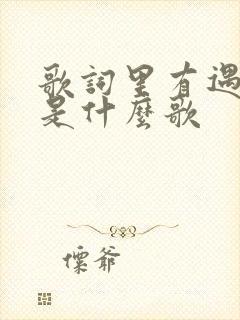 歌詞里有遇
是什麼歌
懍爺